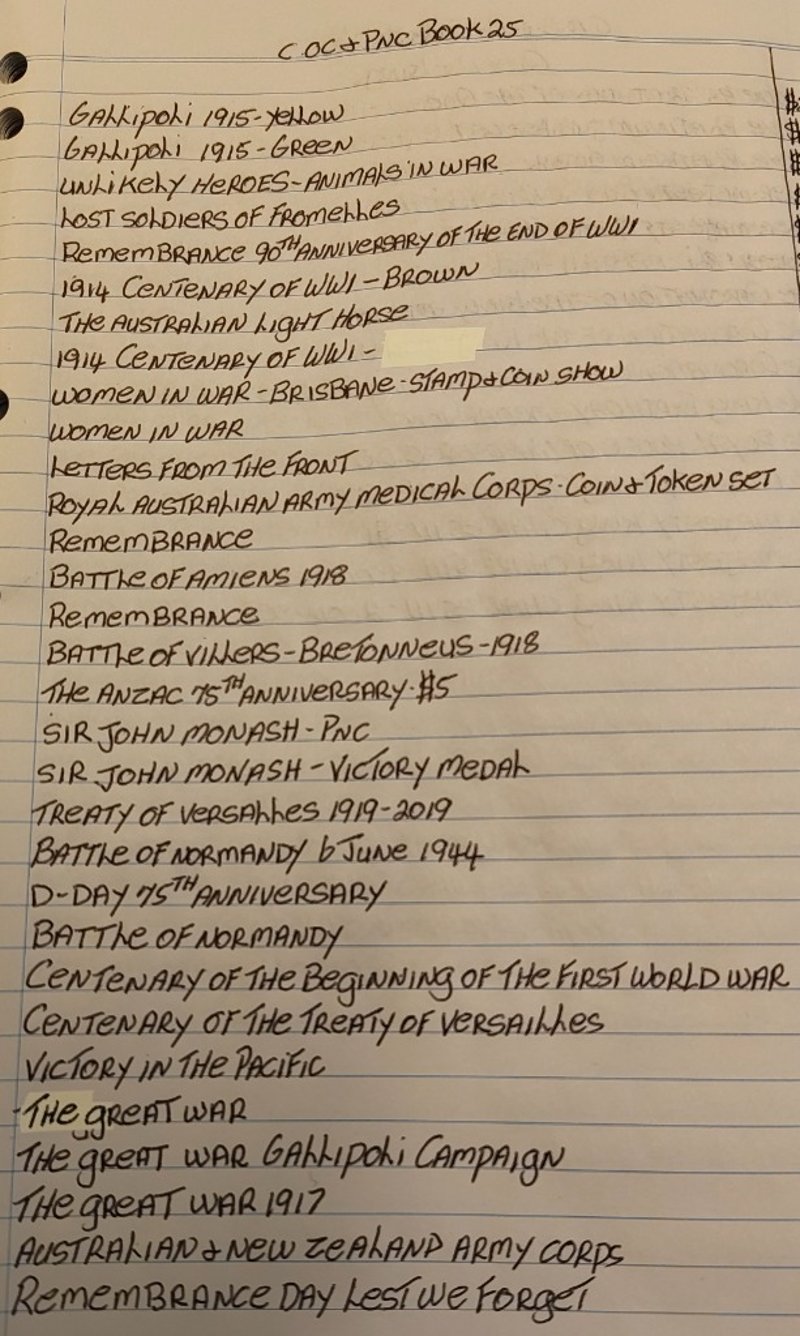 COC & PNC BOOK 25
$
GALLIPOLI 1915-YELLOW
$
GALLIPOLI 1915-GREEN
$
UNLIKELY HEROES-ANIMALS IN WAR
$
LOST SOLDIERS OF FROMELLES
REMEMBRANCE 90TH ANNIVERSARY OF THE END OF WW1
1914 CENTENARY OF WW1-BROWN
THE AUSTRALIAN LIGHT HORSE
1914 CENTENARY OF WW1-
WOMEN IN WAR-BRISBANE-STAMP & COIN SHOW
WOMEN IN WAR
LETTERS FROM THE FRONT
ROYAL AUSTRALIAN ARMY MEDICAL CORPS-COIN & TOKEN SET
REMEMBRANCE
BATTLE OF AMIENS 1918
REMEMBRANCE
BATTLE OF VILLERS-BRETONNEUS-1918
THE ANZAC 75TH ANNIVERSARY-$5
SIR JOHN MONASH-PNC
SIR JOHN MONASH-VICTORY MEDAL
TREATY OF VERSALLES 1919-2019
BATTLE OF NORMANDY 6 JUNE 1944
D-DAY 75TH ANNIVERSARY
BATTLE OF NORMANDY
CENTENARY OF THE BEGINNING OF THE FIRST WORLD WAR
CENTENARY OF THE TREATY OF VERSAILLES
VICTORY IN THE PACIFIC
THE GREAT WAR
THE GREAT WAR GALLIPOLI CAMPAIGN
THE GREAT WAR 1917
AUSTRALIAN & NEW ZEALAND ARMY CORPS
REMEMBRANCE DAY LEST WE FORGET